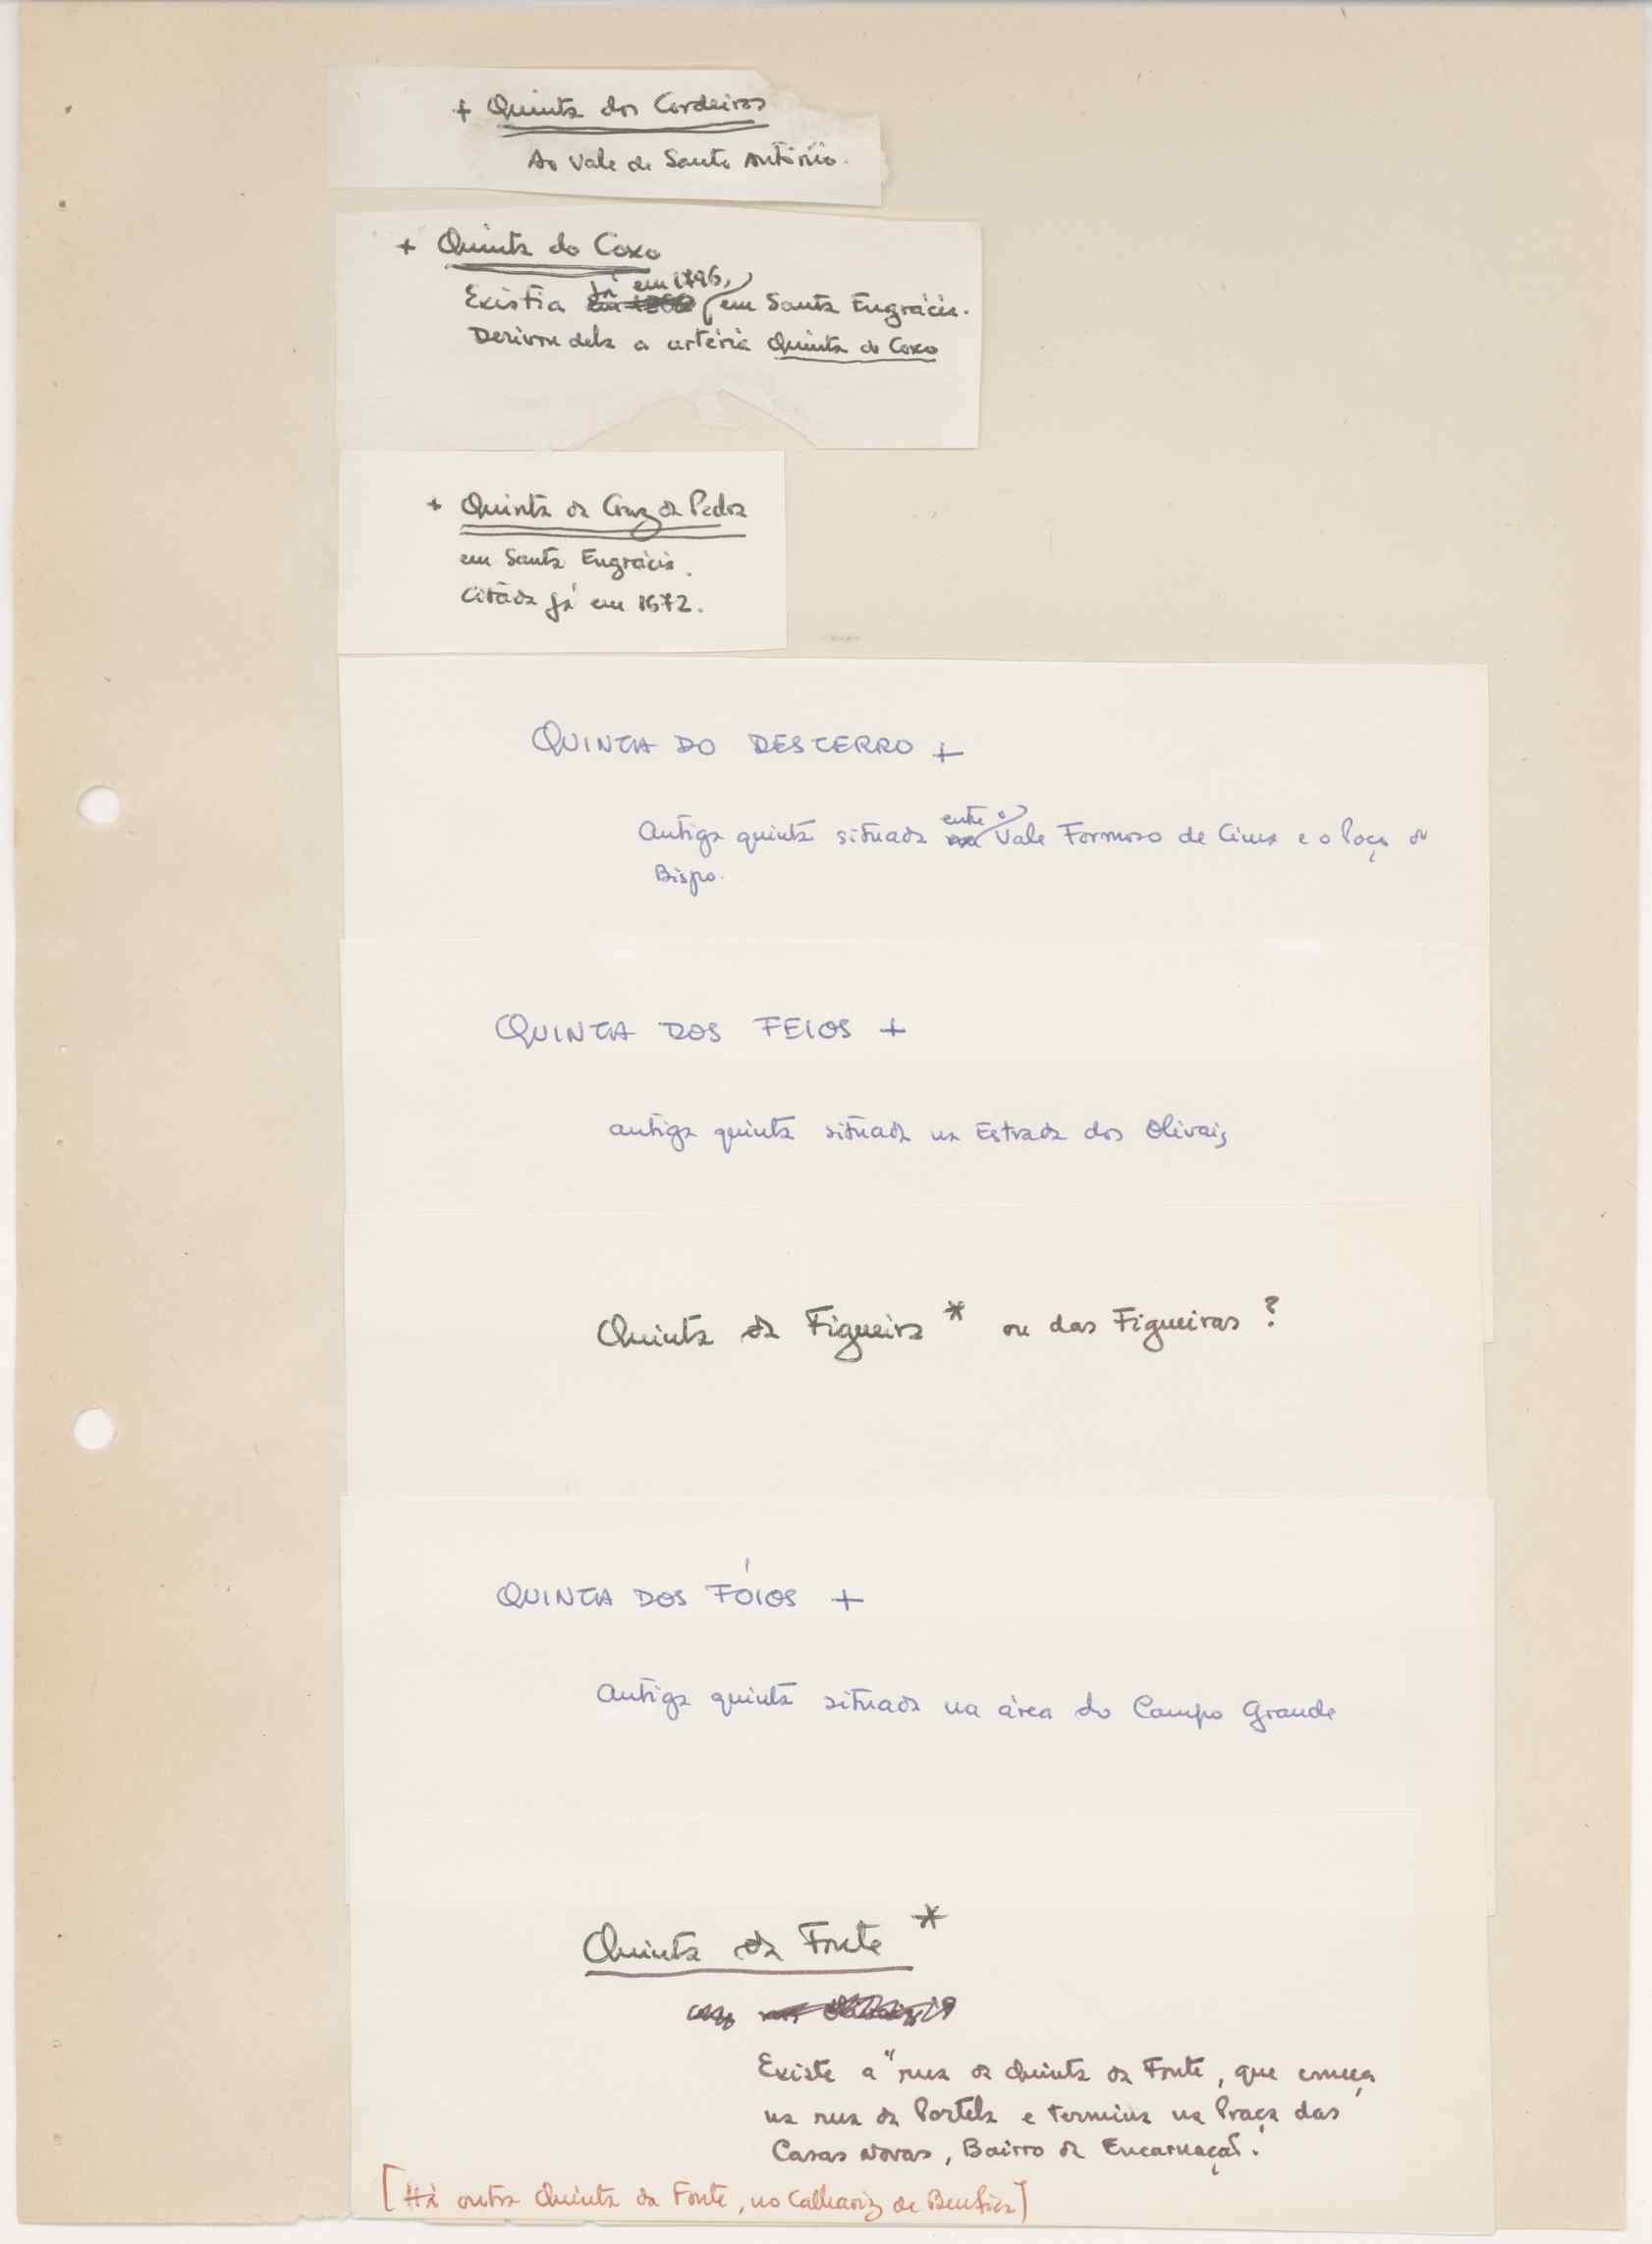 + Quinta dos Cordeiros
Ao Vale de Santo António.
+ Quinta do Coxo
já em 1796,
Existia em Santa Engrácia.
Derivou dela a artéria Quinta do Coxo
+ Quinta da Cruz da Pedra
em Santa Engrácia.
Citada já em 1672.
QUINTA DO DESTERRO +
entre o
Antiga quinta situada Vale Formoso de Cima e o Poço do
Bispo.
QUINTA DOS FEIOS +
antiga quinta situada na Estrada dos Olivais
Quinta da Figueira * ou das Figueiras ?
QUINTA DOS FÓIOS +
Antiga quinta situada na área do Campo Grande
Quinta da Fonte *
Existe a "rua da Quinta da Fonte, que começa
na rua da Portela e termina na Praça das
Casas Novas, Bairro da Encarnação".
[Há outra Quinta da Fonte, no Calhariz de Benfica]